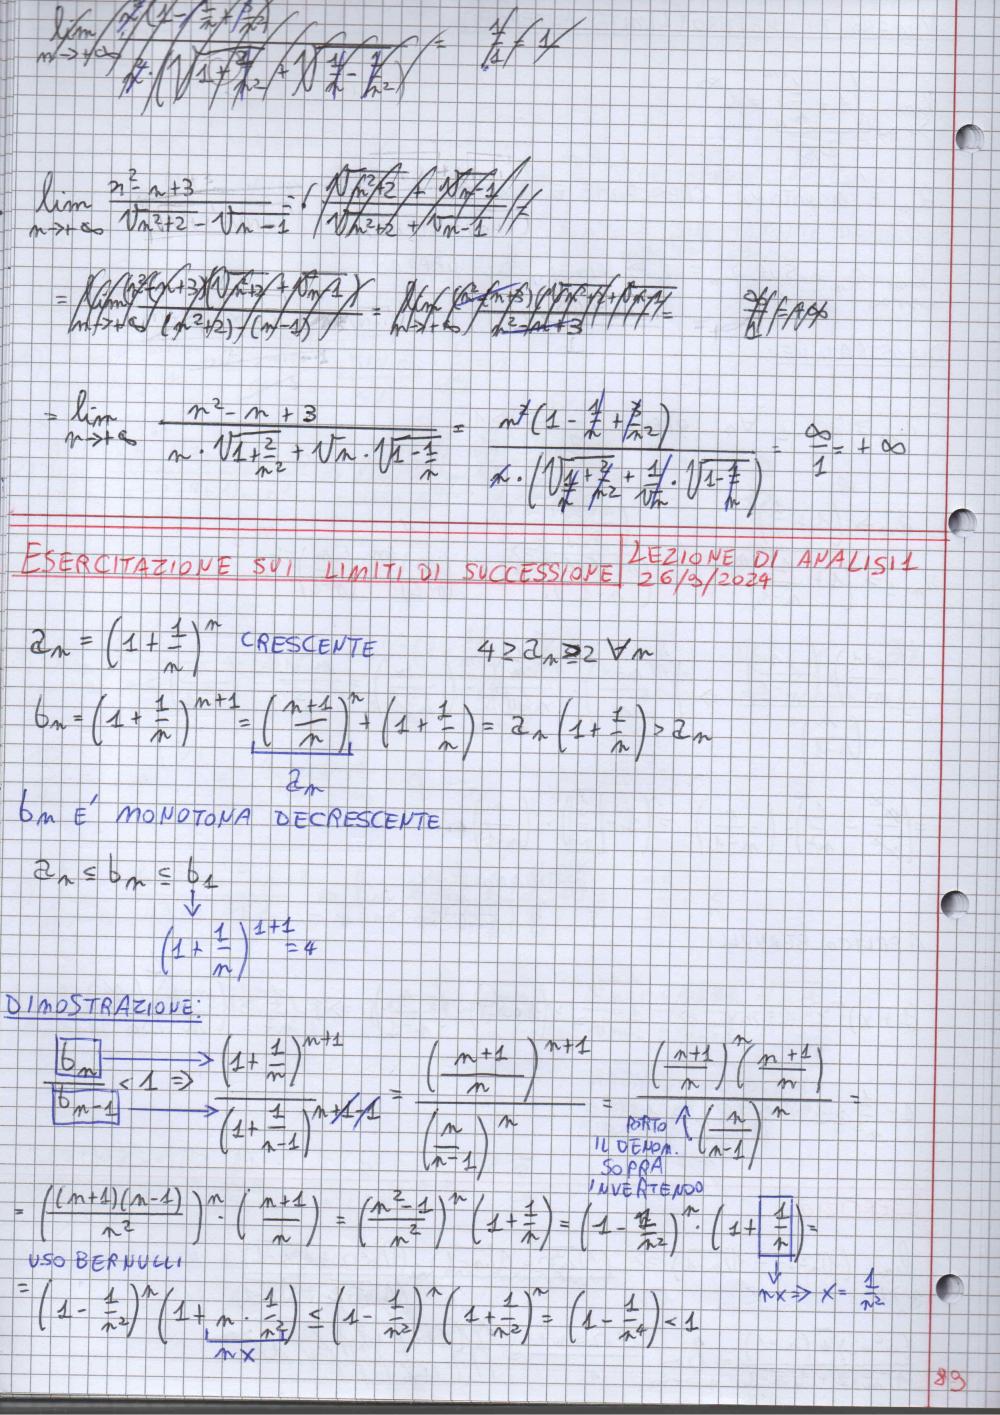 lim n→+∞ (n²-n+3)/(√(n²+2) - √(n-1)) = · (√(n²+2) + √(n-1))/(√(n²+2) + √(n-1)) =
= lim n→+∞ (n²-n+3)(√(n²+2) + √(n-1))/((n²+2)-(n-1)) = lim n→+∞ (n²-n+3)(√(n²+2) + √(n-1))/(n²-n+3) =
= lim n→+∞ (n²-n+3)/(n·√(1+2/n²) + √n·√(1-1/n)) = n²(1 - 1/n + 3/n²)/(n·(√(1+2/n²) + 1/√n·√(1-1/n))) = ∞/1 = +∞
ESERCITAZIONE SUI LIMITI DI SUCCESSIONE | LEZIONE DI ANALISI 1
26/9/2024
aₙ = (1 + 1/n)ⁿ CRESCENTE 4 ≥ aₙ ≥ 2 ∀n
bₙ = (1 + 1/n)ⁿ⁺¹ = ((n+1)/n)ⁿ + (1 + 1/n) = aₙ(1 + 1/n) > aₙ
aₙ
bₙ E' MONOTONA DECRESCENTE
aₙ ≤ bₙ ≤ b₁
↓
(1 + 1/n)¹⁺¹ = 4
DIMOSTRAZIONE:
bₙ/bₙ₋₁ < 1 ⇒ (1 + 1/n)ⁿ⁺¹/(1 + 1/(n-1))ⁿ⁺¹⁻¹ = ((n+1)/n)ⁿ⁺¹/(n/(n-1))ⁿ = ((n+1)/n)ⁿ((n+1)/n)/(n/(n-1))ⁿ =
PORTO
IL DENOM.
SOPRA
INVERTENDO
= ((n+1)(n-1)/n²)ⁿ · ((n+1)/n) = ((n²-1)/n²)ⁿ (1 + 1/n) = (1 - 1/n²)ⁿ · (1 + 1/n) =
USO BERNULLI
nx ⇒ x = 1/n²
= (1 - 1/n²)ⁿ(1 + n · 1/n²) ≤ (1 - 1/n²)ⁿ(1 + 1/n²)ⁿ = (1 - 1/n⁴) < 1
nx
89